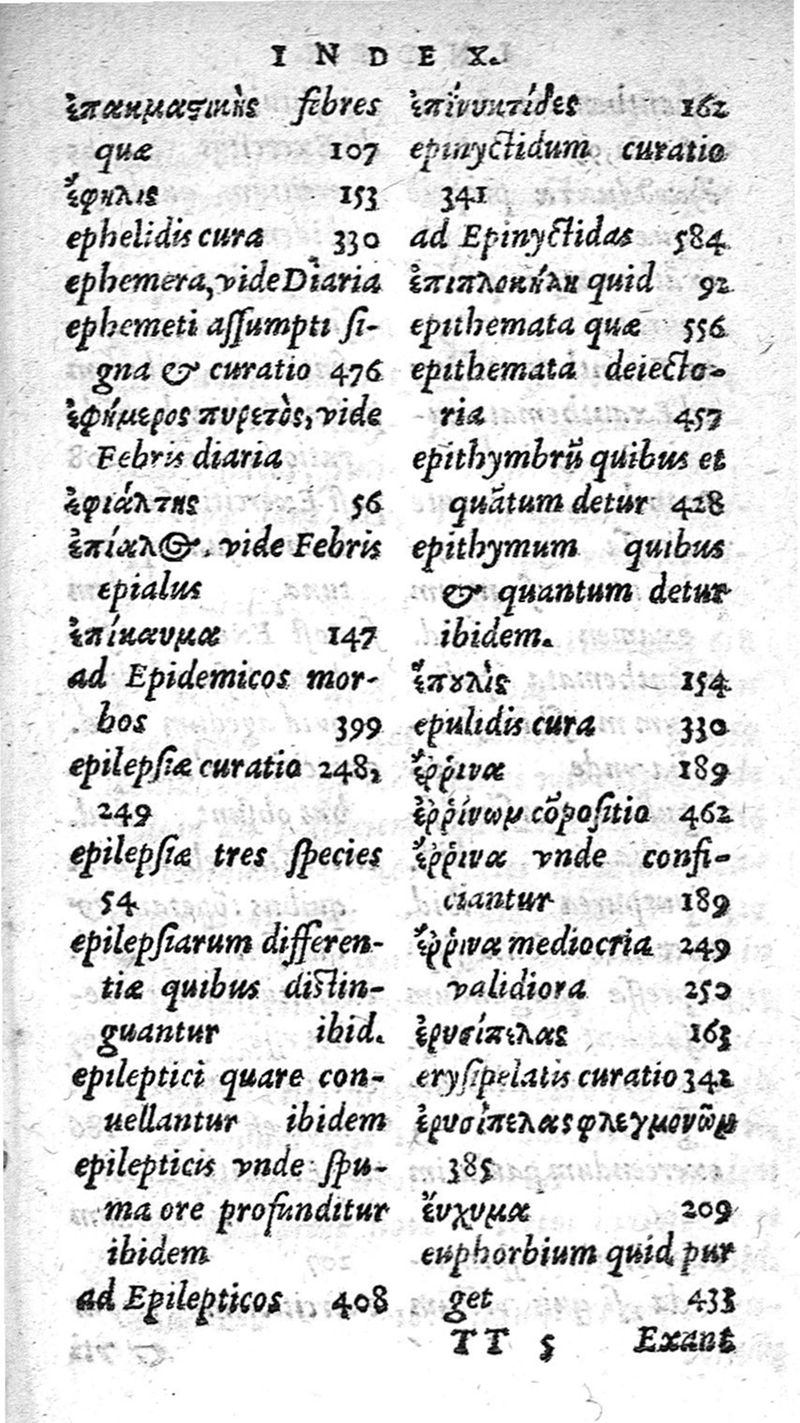 INDEX.
ἐπακμαστικὴς febres
quæ 107
ἔφηλις 153
ephelidis cura 330
ephemera, vide Diaria
ephemeti assumpti si-
gna & curatio 476
ἐφήμερος πυρετὸς, vide
Febris diaria
ἐφιάλτης 56
ἐπίαλος, vide Febris
epialus
ἐπίκαυμα 147
ad Epidemicos mor-
bos 399
epilepsiæ curatio 248,
249
epilepsiæ tres species
54
epilepsiarum differen-
tiæ quibus distin-
guantur ibid.
epileptici quare con-
uellantur ibidem
epilepticis vnde spu-
ma ore profunditur
ibidem
ad Epilepticos 408
ἐπίνυκτίδες 162
epinyctidum curatio
341
ad Epinyctidas 584
ἐπιπλοκήλη quid 92
epithemata quæ 556
epithemata deiecto-
ria 457
epithymbrũ quibus et
quãtum detur 428
epithymum quibus
& quantum detur
ibidem.
ἔπουλὶς 154
epulidis cura 330
ἔῤῥινα 189
ἐῤῥίνωμ cõpositio 462
ἔῤῥινα vnde confi-
ciantur 189
ἔῤῥινα mediocria 249
validiora 250
ἐρυσίπελας 163
erysipelatis curatio 342
ἐρυσίπελας φλεγμονῶμ
385
ἔνχυμα 209
euphorbium quid pur
get 433
TT 5 Exant